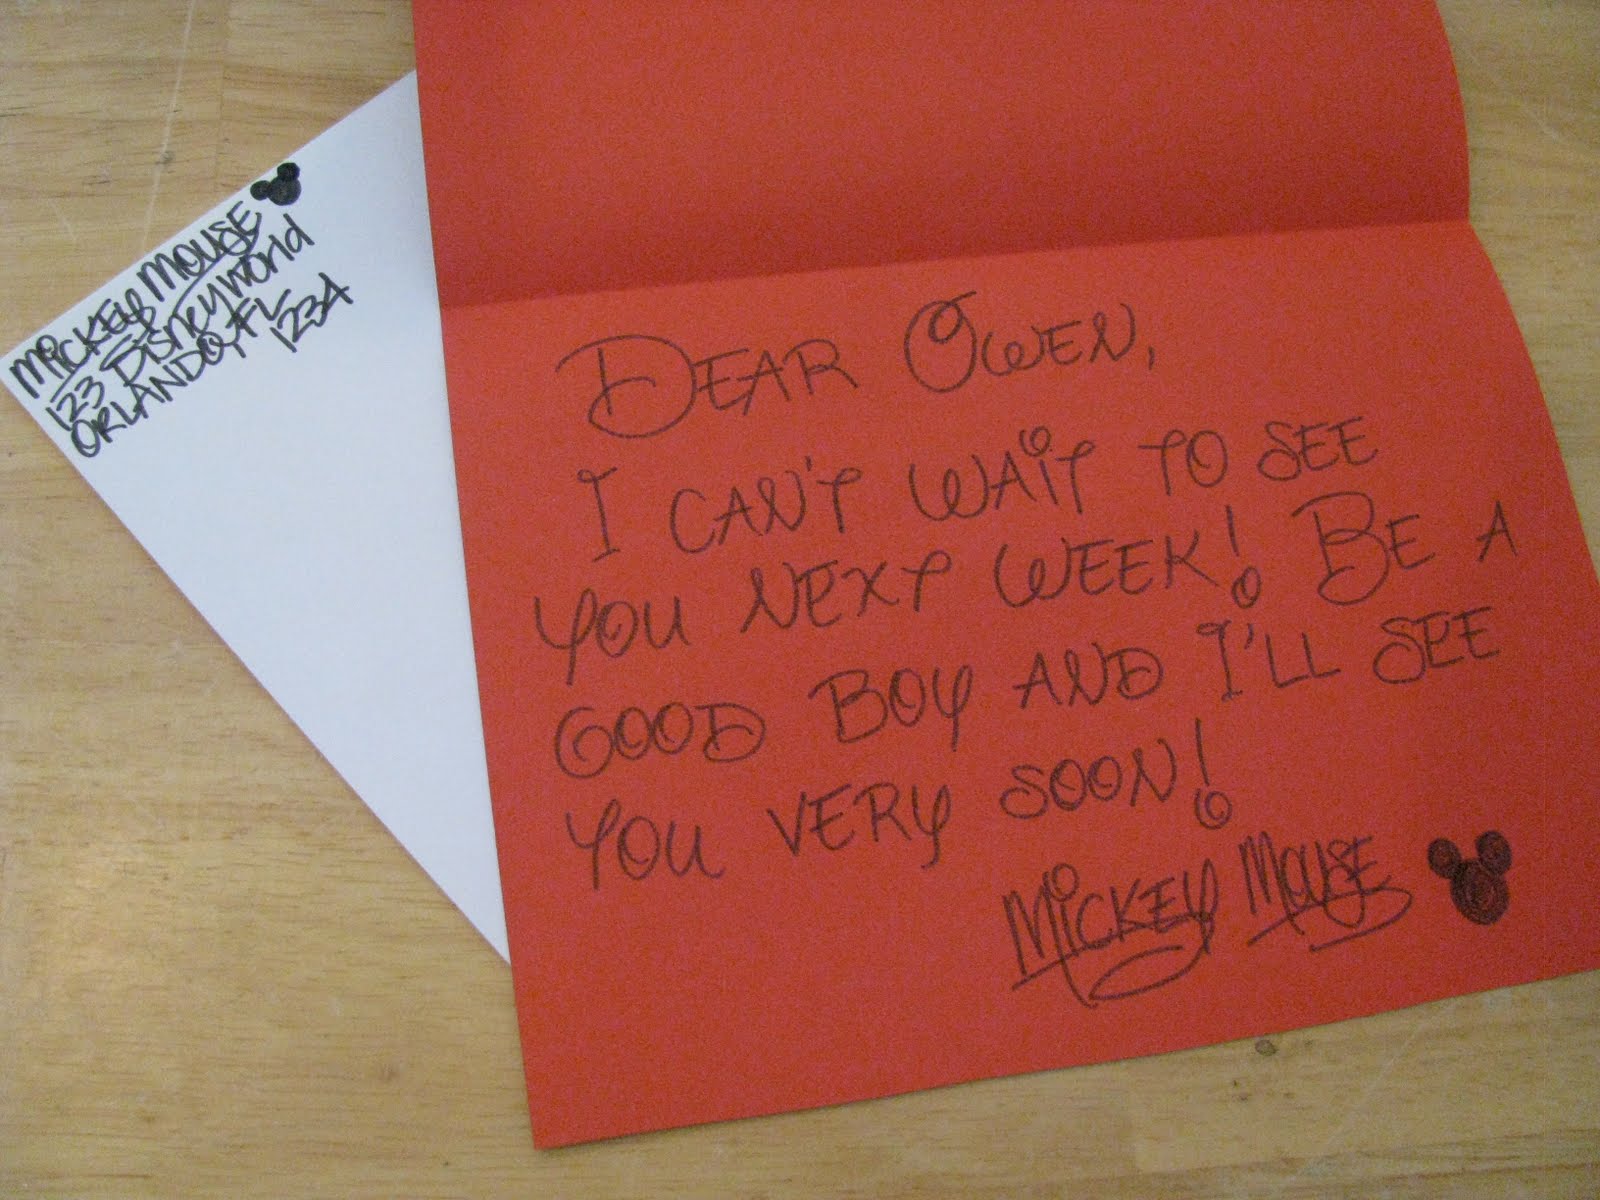 MiCKEY MOUSE
123 Disneyworld
ORLANDO, FL
1234
DEAR OWEN,
I CAN'T WAIT TO SEE
YOU NEXT WEEK! BE A
GOOD BOY AND I'LL SEE
YOU VERY SOON!
MiCKEY MOUSE